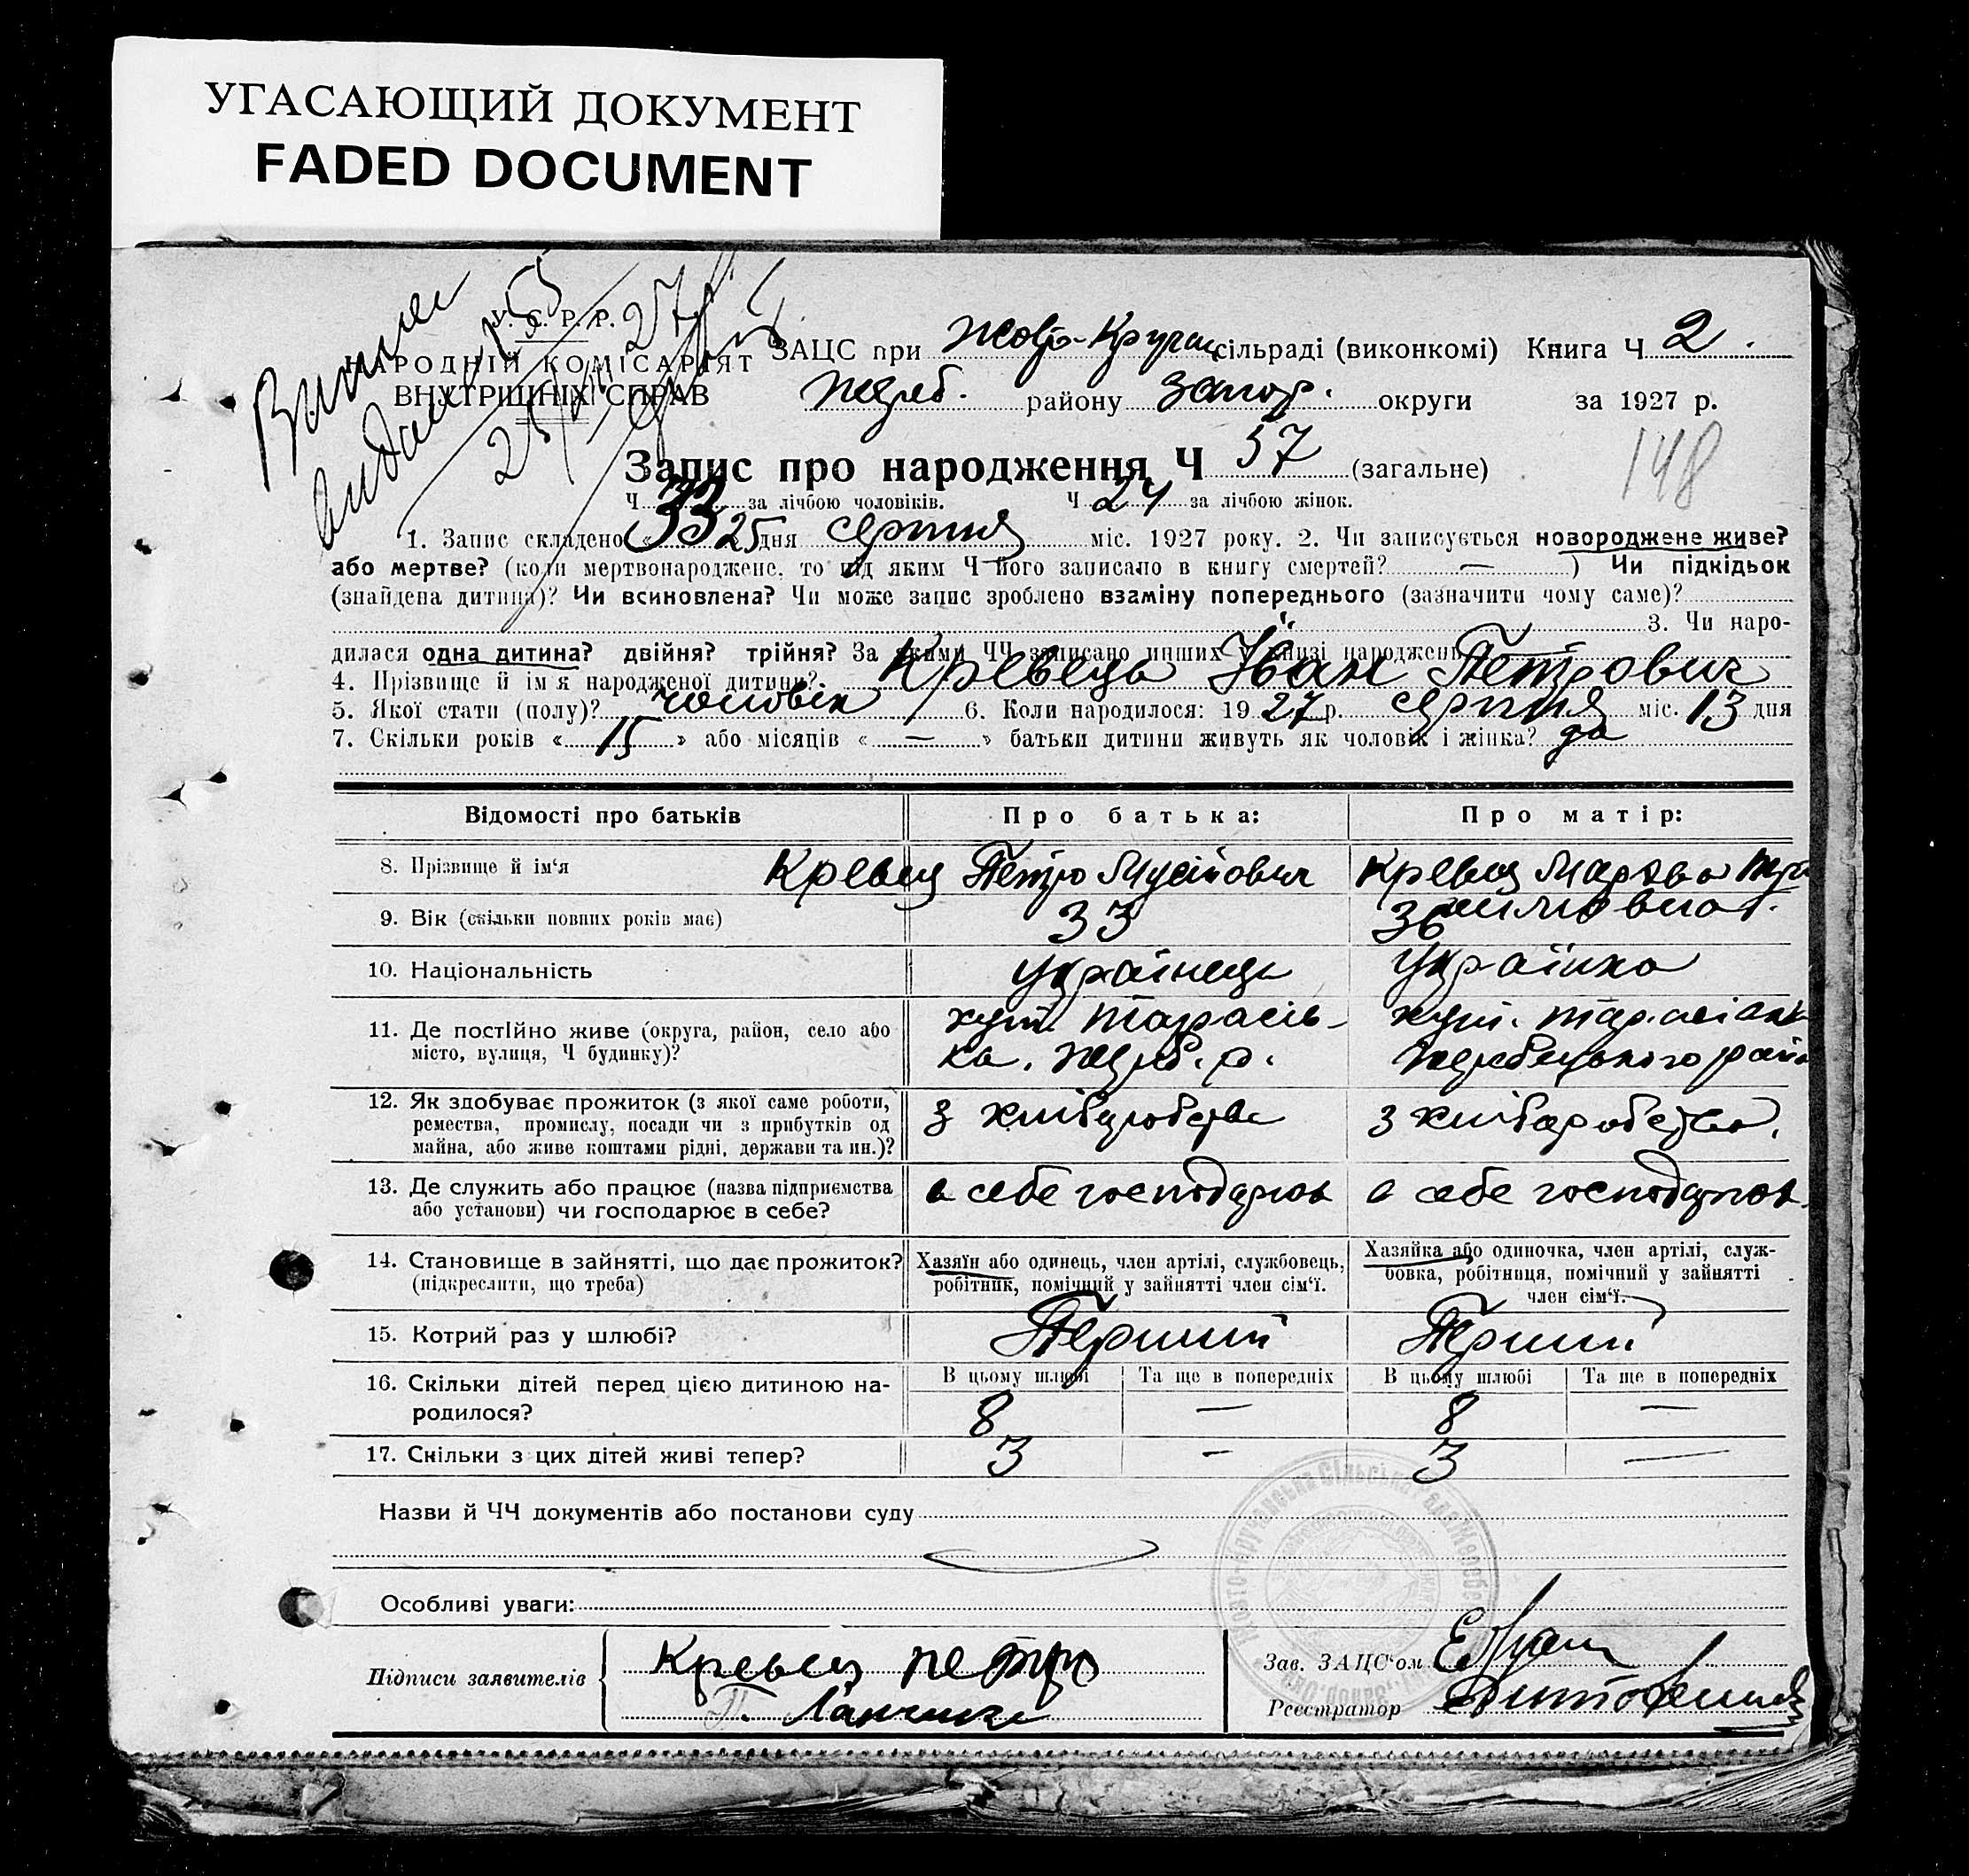 УГАСАЮЩИЙ ДОКУМЕНТ
FADED DOCUMENT
У. С. Р. Р.
НАРОДНІЙ КОМІСАРІЯТ
ВНУТРІШНІХ СПРАВ
ЗАЦС при Жовто-Круган. сільраді (виконкомі) Книга Ч 2.
Жереб. району Запор. округи за 1927 р.
148
Запис про народження Ч 57 (загальне)
Ч 33 за лічбою чоловіків. Ч 24 за лічбою жінок.
1. Запис складено « 25 дня серпня міс. 1927 року. 2. Чи записується новороджене живе?
або мертве? (коли мертвонароджене, то під яким Ч його записано в книгу смертей? — ) Чи підкідьок
(знайдена дитина)? Чи всиновлена? Чи може запис зроблено взаміну попереднього (зазначити чому саме)?
3. Чи наро-
дилася одна дитина? двійня? трійня? За якими ЧЧ записано инших у книзі народжень
4. Прізвище й ім'я народженої дитини? Кревець Іван Петрович
5. Якої стати (полу)? чоловік 6. Коли народилося: 1927 р. серпня міс. 13 дня
7. Скільки років « 15 » або місяців « — » батьки дитини живуть як чоловік і жінка? да
Відомості про батьків Про батька: Про матір:
8. Прізвище й ім'я Кревец Петро Мусійович Кревец
9. Вік (скільки повних років має) 33 36
10. Національність українець українка
11. Де постійно живе (округа, район, село або хут. Тарасів- хут.
місто, вулиця, Ч будинку)? ка. Жереб. р. Жеребецького
12. Як здобуває прожиток (з якої саме роботи,
ремества, промислу, посади чи з прибутків од з хліборобства з хліборобства.
майна, або живе коштами рідні, держави та ин.)?
13. Де служить або працює (назва підприємства в себе в себе
або установи) чи господарює в себе?
14. Становище в зайнятті, що дає прожиток? Хазяїн або одинець, член артілі, службовець, Хазяйка або одиночка, член артілі, служ-
(підкреслити, що треба) робітник, помічний у зайнятті член сім'ї. бовка, робітниця, помічний у зайнятті
член сім'ї.
15. Котрий раз у шлюбі? Перший Перший
16. Скільки дітей перед цією дитиною на- В цьому шлюбі Та ще в попередніх В цьому шлюбі Та ще в попередніх
родилося? 8 — 8 —
17. Скільки з цих дітей живі тепер? 3 - 3 —
Назви й ЧЧ документів або постанови суду
Особливі уваги:
Підписи заявителів Кревец Петро
Зав. ЗАЦС'ом
Реєстратор